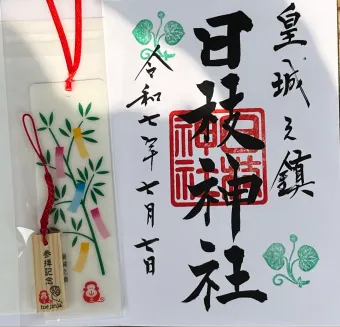 皇城之鎮
日枝神社
令和七年七月七日
参拝記念